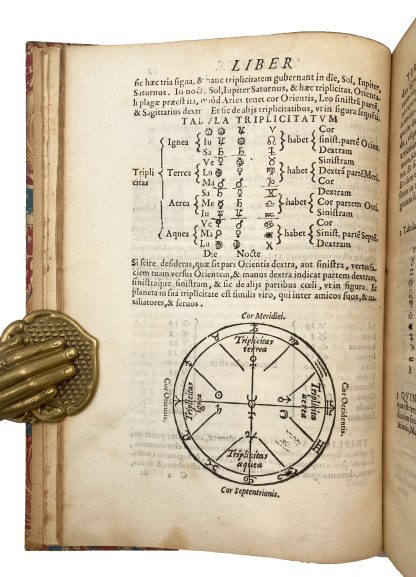 LIBER
sic hæc tria signa, & hanc triplicitatem gubernant in die, Sol, Iupiter,
Saturnus. In nocte Sol, Iupiter Saturnus, & hæc triplicitas. Orienta-
li plagæ præest ita, quòd Aries tenet cor Orientis, Leo sinistrã partẽ,
& Sagittarius dextr Et sic de alijs triplicitatibus, vt in figura sequẽti.
TABULA TRIPLICITATVM
♈ Cor
Ignea Iu ♃ ♌ habet sinist. partẽ Orien.
Sa ♐ Dextram
Ve ♀ ♉ Sinistram
Tripli Terrea Lu ♍ habet Dextrã partẽ Meri,
citas Ma ♂ ♑ Cor
Sa ♄ Dextram
Aerea Me ☿ habet Cor partem Occi,
Iu ♃ Sinistram
Ve ♀ Cor
Aquea Ma habet Sinist. partẽ Septẽ,
Lu Dextram
Die Nocte
Si scire desideras, quæ sit pars Orientis dextra, aut sinistra, vertas fa-
ciem tuam versus Orientem, & manus dextra indicat partem dextram,
sinistraque sinistram, & sic de alijs partibus cœli, vt in figura. Et
planeta in sua triplicitate est similis viro, qui inter amicos suos, & au-
xiliatores, & seruos.
Cor Meridiei.
Triplicitas
terrea
Cor Orientis.
Triplicitas
ignea
Triplicitas
aerea
Cor Occidentis.
Triplicitas
aquea
Cor Septentrionis.